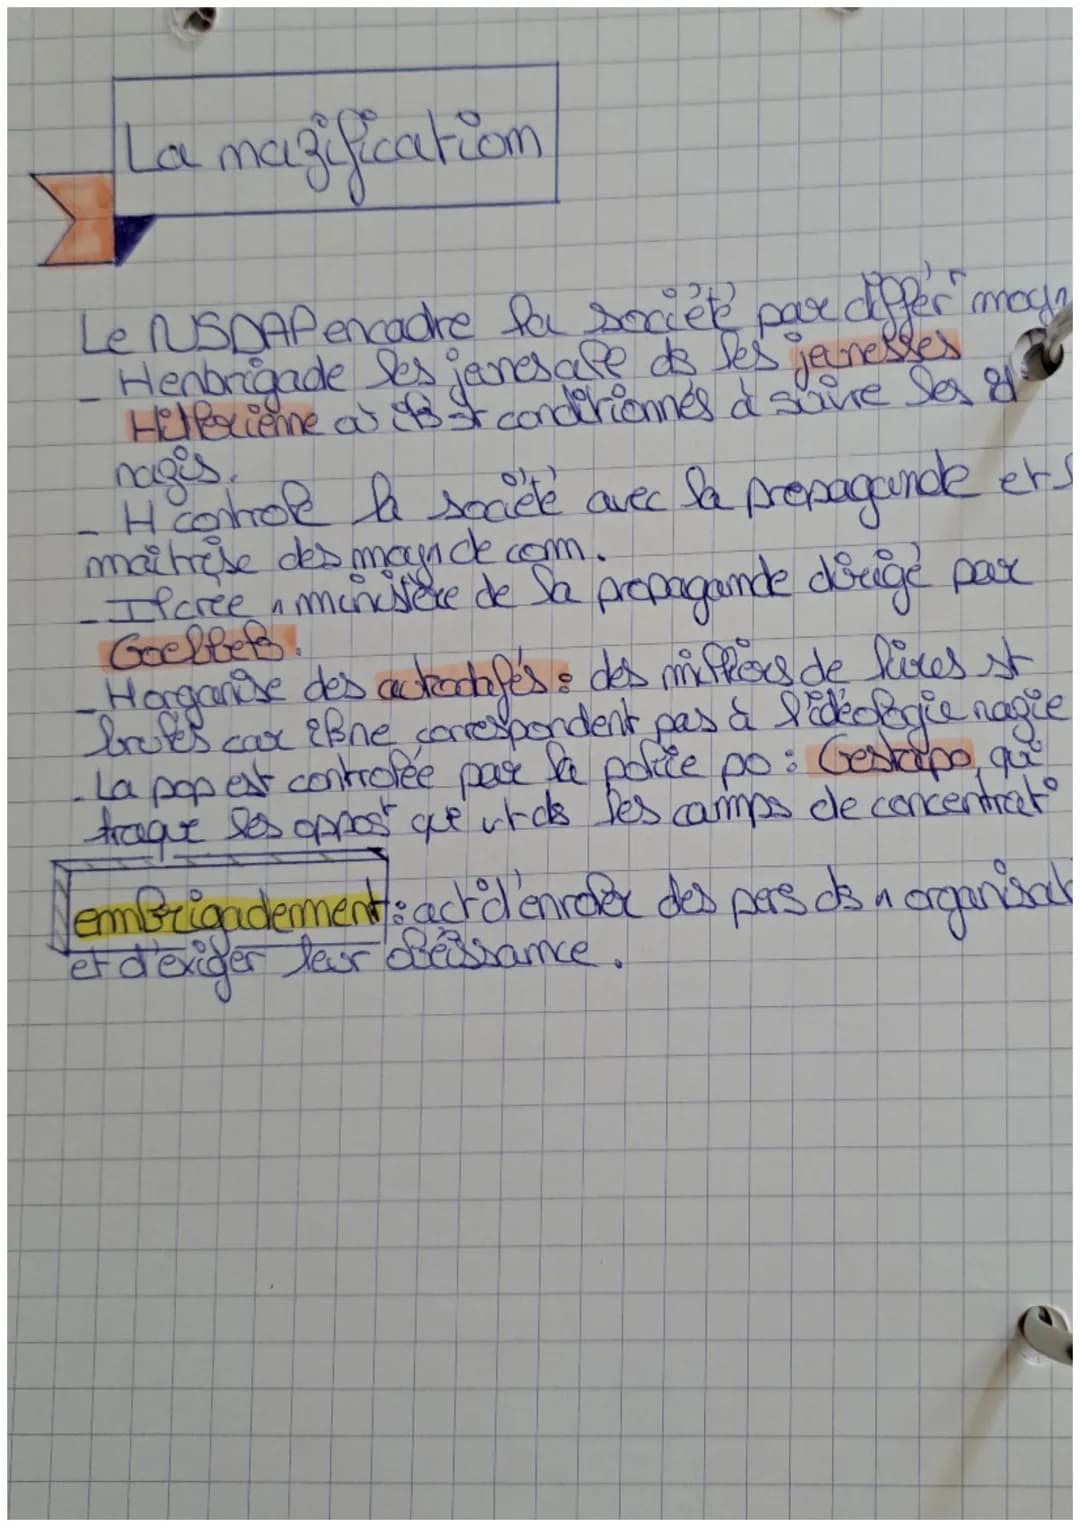 La nazification
Le NSDAP encadre la société par différt moyn
- H enbrigade les jeunes alle ds les jeunesses
Hitlérienne où ils st conditionnés à suivre les
nazis.
- H controle la société avec la propagande et s
maîtrise des moyn de com.
- Il crée 1 ministère de la propagande dirigé par
Goebbels.
- H organise des autodafés : des milliers de livres st
brulés car ils ne correspondent pas à l'idéologie nazie
- La pop est controlée par la police po : Gestapo, qui
traque les oppost que vt ds les camps de concentrat°
embrigadement : act° d'enroler des pers ds 1 organisat
et d'exiger leur obéissance.